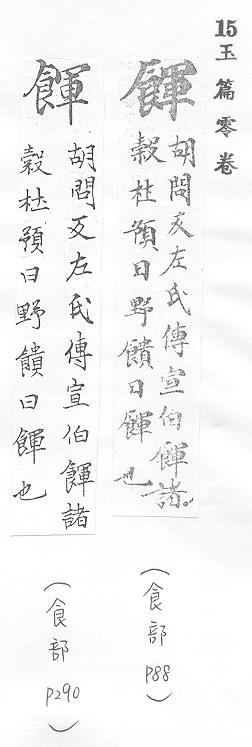 15玉篇零卷
餫
胡問反左氏傳宣伯餫諸
穀杜預曰野饋曰餫也
(食部P88)
餫
胡問反左氏傳宣伯餫諸
穀杜預曰野饋曰餫也
(食部P290)